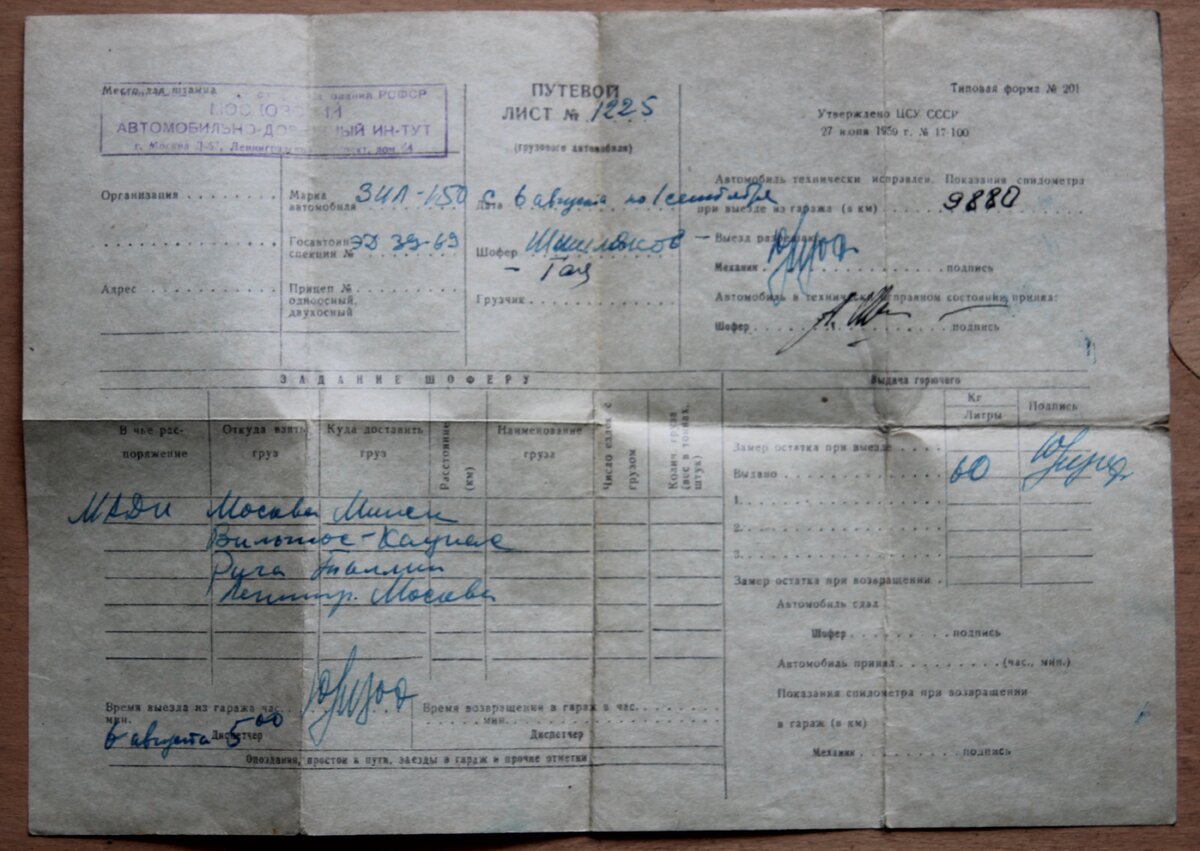 Место для штампа
РСФСР
АВТОМОБИЛЬНО-ДОРОЖНЫЙ ИН-ТУТ
г. Москва
ПУТЕВОЙ
ЛИСТ № 1225
(грузового автомобиля)
Типовая форма № 201
Утверждено ЦСУ СССР
27 июня 1959 г. № 17-100
Организация
Адрес
Марка автомобиля ЗИЛ-150
Госавтоин-
спекция № ЭД 39-69
Прицеп №
одноосный,
двухосный
Дата с 6 августа по 1 сентября
Шофер
Грузчик
Автомобиль технически исправен. Показания спидометра
при выезде из гаража (в км) 9880
Выезд разрешаю
Механик подпись
Автомобиль в технически исправном состоянии принял:
Шофер подпись
ЗАДАНИЕ ШОФЕРУ
В чье рас-
поряжение
Откуда взять
груз
Куда доставить
груз
Расстояние
(км)
Наименование
груза
Число ездок с
грузом
Колич. груза
(вес в тоннах,
штук)
МАДИ Москва Минск
Вильнюс-Каунас
Рига Таллин
Ленингр. Москва
Выдача горючего
Кг
Литры
Подпись
Замер остатка при выезде
Выдано 60
1.
2.
3.
Замер остатка при возвращении
Автомобиль сдал
Шофер подпись
Автомобиль принял (час., мин.)
Показания спидометра при возвращении
в гараж (в км)
Механик подпись
Время выезда из гаража час.
мин.
6 августа 5 00
Диспетчер
Время возвращения в гараж в час.
мин.
Диспетчер
Опоздания, простои в пути, заезды в гараж и прочие отметки